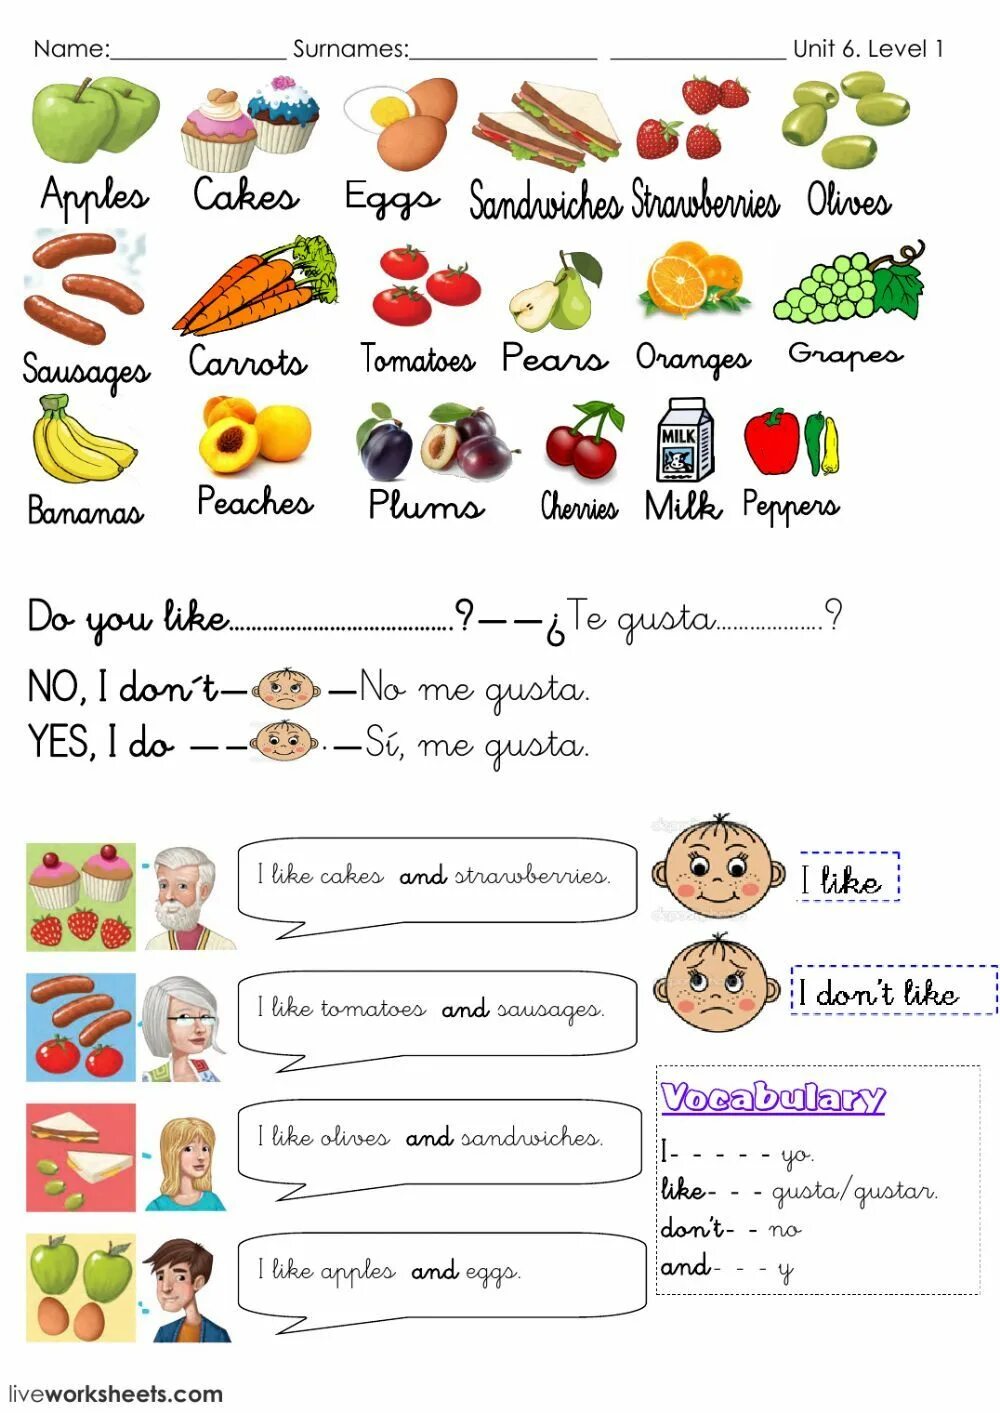 Name:______________ Surnames:_______________ ______________ Unit 6. Level 1
Apples Cakes Eggs Sandwiches Strawberries Olives
Sausages Carrots Tomatoes Pears Oranges Grapes
MILK
Bananas Peaches Plums Cherries Milk Peppers
Do you like........................................?——¿Te gusta...................?
NO, I don´t— —No me gusta.
YES, I do —— .—Sí, me gusta.
I like cakes and strawberries.
I like
I like tomatoes and sausages.
I don't like
I like olives and sandwiches.
I like apples and eggs.
Vocabulary
I- - - - - yo.
like- - - gusta/gustar.
don't- - no
and- - - y
liveworksheets.com